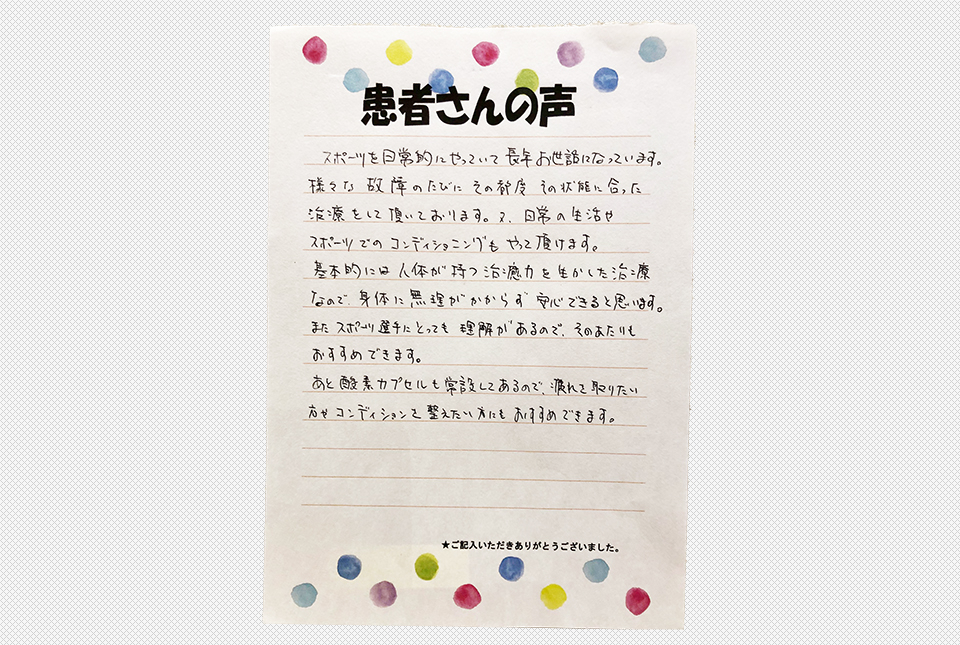 患者さんの声
スポーツを日常的にやっていて長年お世話になっています。
様々な故障のたびにその都度その状態に合った
治療をして頂いております。又、日常の生活や
スポーツでのコンディショニングもやって頂けます。
基本的には人体が持つ治癒力を生かした治療
なので、身体に無理がかからず安心できると思います。
またスポーツ選手にとっても理解があるので、そのあたりも
おすすめできます。
あと酸素カプセルも常設してあるので、疲れを取りたい
方やコンディションを整えたい方にもおすすめできます。
★ご記入いただきありがとうございました。